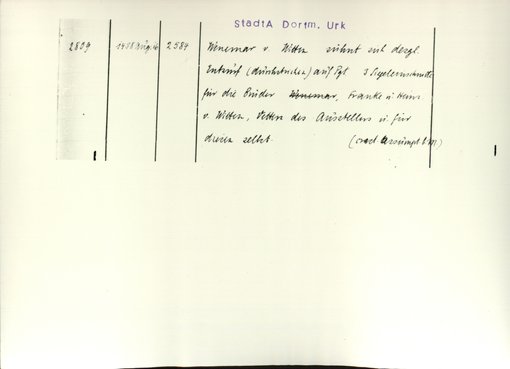 StadtA Dortm. Urk
2809 2584 Winemar v. Witten sühnt sich dergl.
Entwurf (durchstrichen) auf Pgt 3 Siegeleinschnitte
für die Brüder Winemar, Franke u Herm
v. Witten, Vettern des Ausstellers u für
diesen selbst. (crast Assumpt b M)